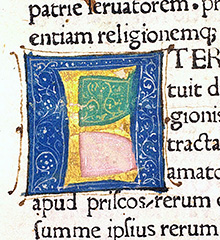 patrie seruatorem. pr
entiam religionemq;
TER
tuit d
gionis
tracta
amato
apud priscos, rerum
summe ipsius rerum